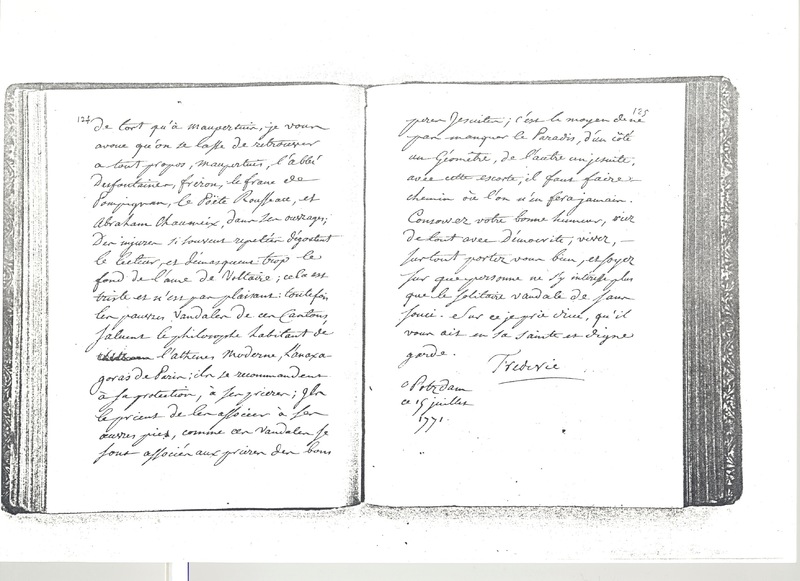 124
de tort qu'à maupertuis, je vous
avoue qu'on se lasse de retrouver
a tout propos, maupertuis, l'abbé
Desfontaines, freron, le franc de
Pompignan, le Poëte Rousseau, et
Abraham Chaumeix, dans ses ouvrages;
Des injures si souvent repetées dégoutent
le lecteur, et démasquent trop le
fond de l'ame de Voltaire; cela est
triste et n'est pas plaisant: toutefois
les pauvres Vandales de ces Cantons
saluent le philosophe habitant de
l'athènes moderne, l'anaxa
goras de Paris; ils se recommandent
à sa protection, à ses prieres; Ils
le prient de les associer à ses
œuvres pies, comme ces Vandales se
sont associés aux prieres des bons
125
peres Jesuites; c'est le moyen de ne
pas manquer le Paradis, d'un côté
un Géomètre, de l'autre un jesuite,
avec cette escorte, il faut faire
chemin où l'on n'en fera jamais.
Conservez votre bonne humeur, riez
de tout avec Démocrite, vivez, –
surtout portez vous bien, et soyez
sur que personne ne s'y intéresse plus
que le solitaire vandale de sans
souci. Sur ce je prie dieu, qu'il
vous ait en sa sainte et digne
garde.
Frederic
à Potzdam
ce 15 juillet
1771.